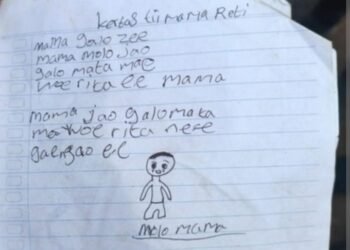 kertas tii mama Roti
mama galo zee
mama molo jao
galo mata mae
woe rita ee mama
mama jao galo mata
ma woe rita nee
ee
molo mama